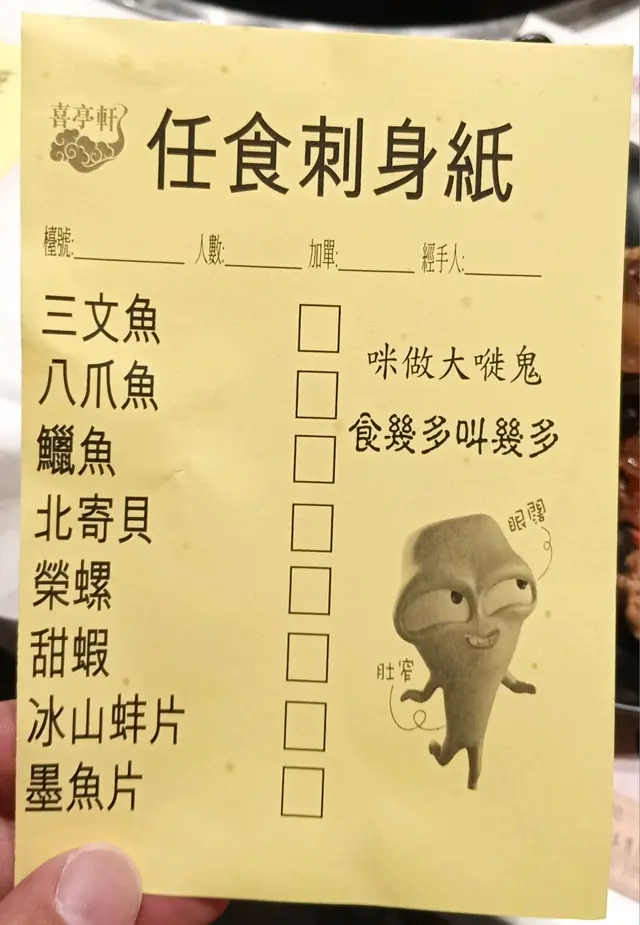 喜亭軒
任食刺身紙
檯號:________ 人數:________ 加單:________ 經手人:________
三文魚
八爪魚
鱲魚
北寄貝
榮螺
甜蝦
冰山蚌片
墨魚片
咪做大嘥鬼
食幾多叫幾多
眼闊
肚窄